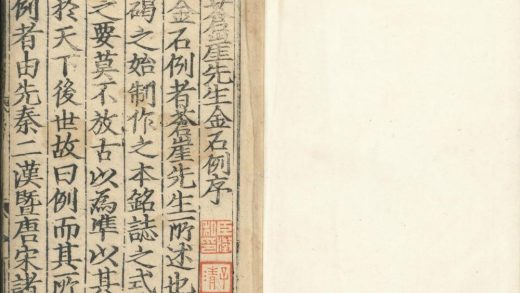 蒼崖先生金石例序
金石例者蒼崖先生所述也
碣之始制作之本銘誌之式
之要莫不放古以為準以其
於天下後世故曰例而其所
例者由先秦二漢暨唐宋諸